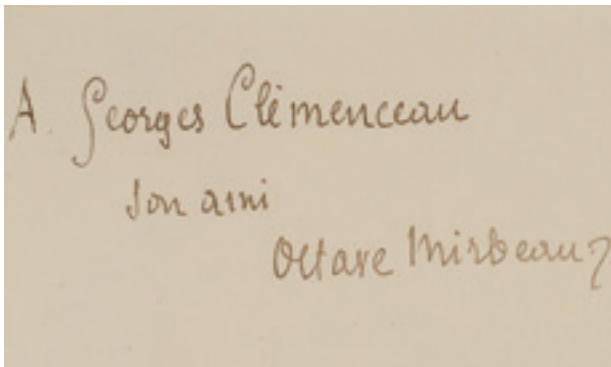 A. Georges Clémenceau
son ami
Octave Mirbeau